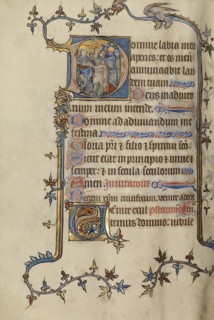 Domine labia mea
aperies: et os meum
annuntiabit lau
dem tuam
Deus in adiuto
rium meum intende
Domine ad adiuvandum me
festina
Gloria pri et filio et spiritui
sicut erat in principio et nunc et
semper: et in secula seculorum
Amen Invitatorium
venite
Venite exul
temus domino iubile